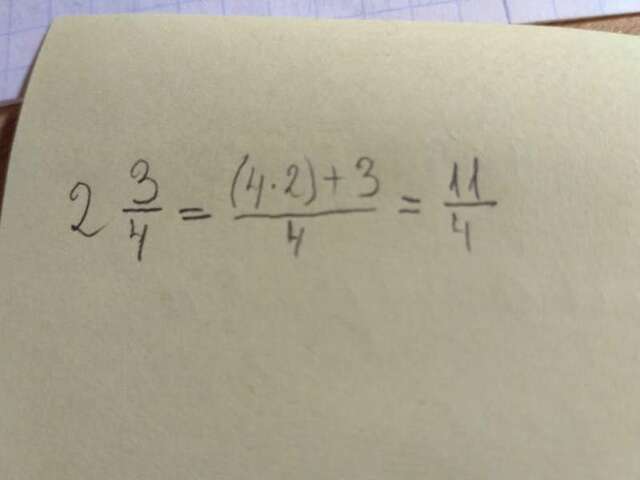 2 3/4 = (4·2)+3/4 = 11/4